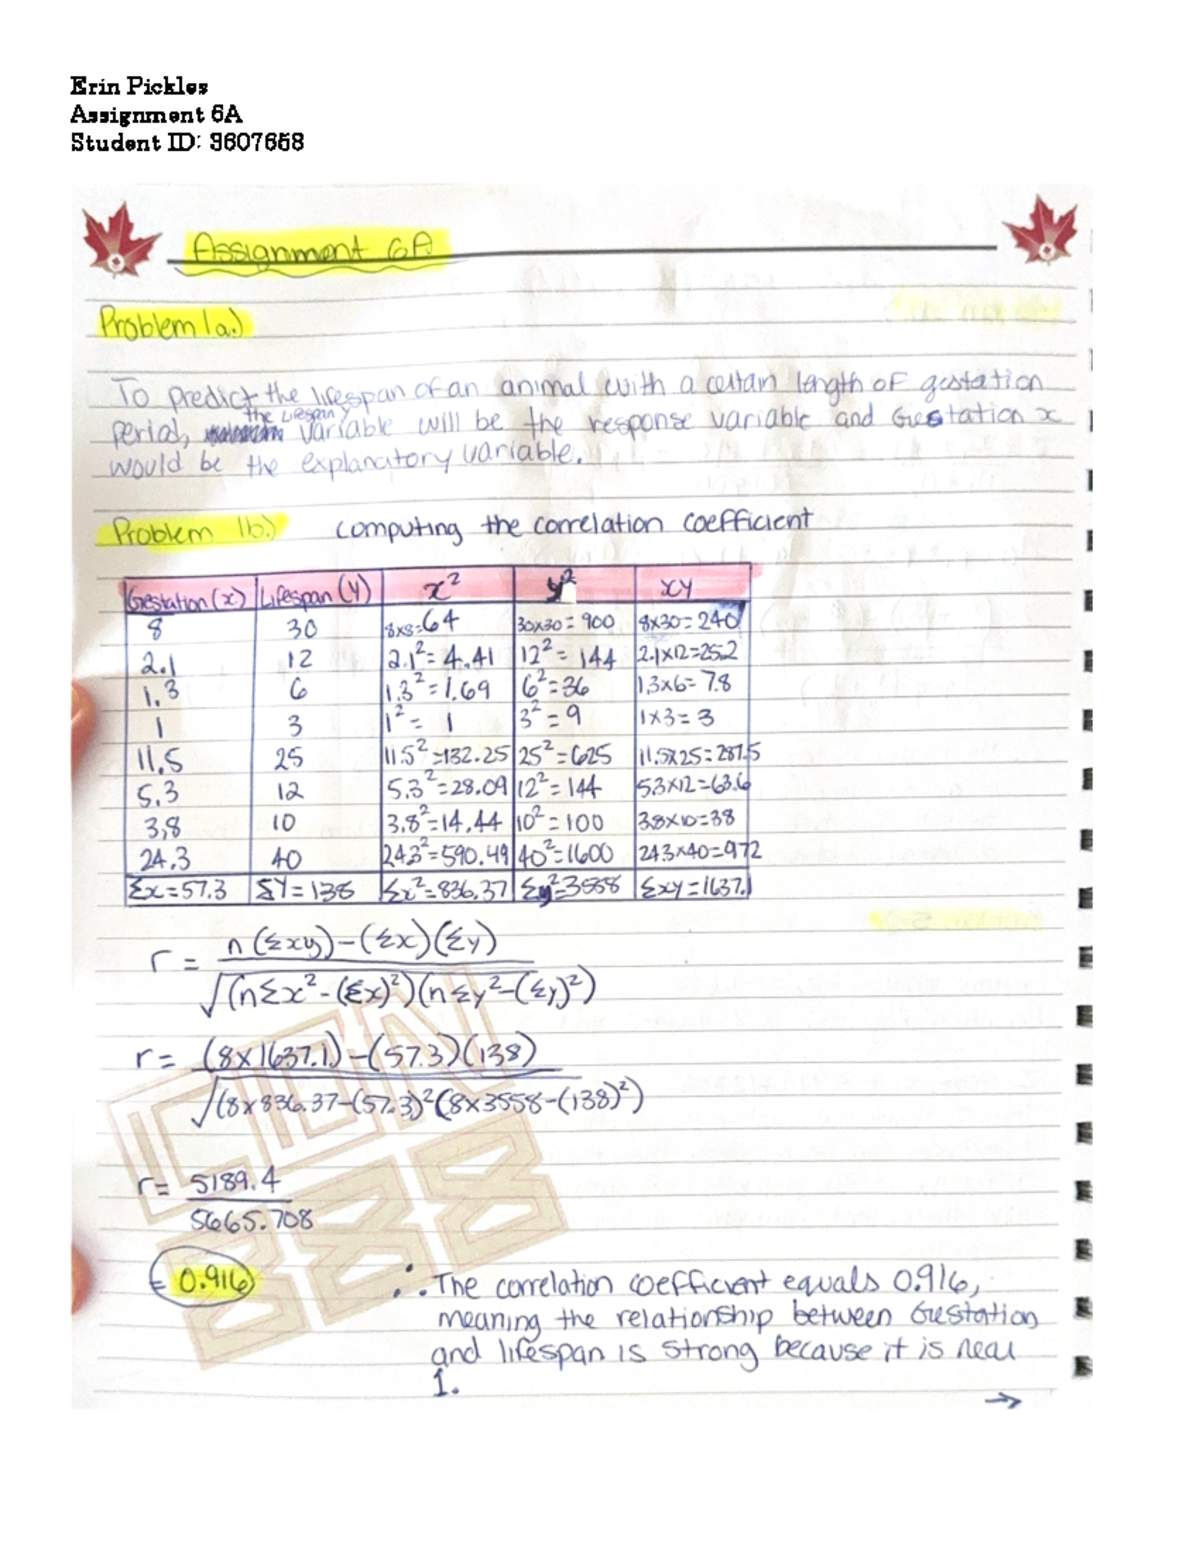 Erin Pickles
Assignment 6A
Student ID: 3607658
Assignment 6A
Problem 1a.)
To predict the lifespan of an animal with a certain length of gestation
the Lifespan y
period, variable will be the response variable and Gestation x
would be the explanatory variable.
Problem 1b.) computing the correlation coefficient
Gestation (x) Lifespan (y) x² y² xy
8 30 8x8=64 30x30=900 8x30=240
2.1 12 2.1²=4.41 12²=144 2.1x12=25.2
1.3 6 1.3²=1.69 6²=36 1.3x6=7.8
1 3 1²=1 3²=9 1x3=3
11.5 25 11.5²=132.25 25²=625 11.5x25=287.5
5.3 12 5.3²=28.09 12²=144 5.3x12=63.6
3.8 10 3.8²=14.44 10²=100 3.8x10=38
24.3 40 24.3²=590.49 40²=1600 24.3x40=972
Σx=57.3 ΣY=138 Σx²=836.37 Σy²=3558 Σxy=1637.1
r = n(Σxy)-(Σx)(Σy)
√(nΣx²-(Σx)²)(nΣy²-(Σy)²)
r = (8x1637.1)-(57.3)(138)
√(8x836.37-(57.3)²(8x3558-(138)²)
r= 5189.4
5665.708
= 0.916 ∴ The correlation coefficient equals 0.916,
meaning the relationship between Gestation
and lifespan is strong because it is near
1.
→